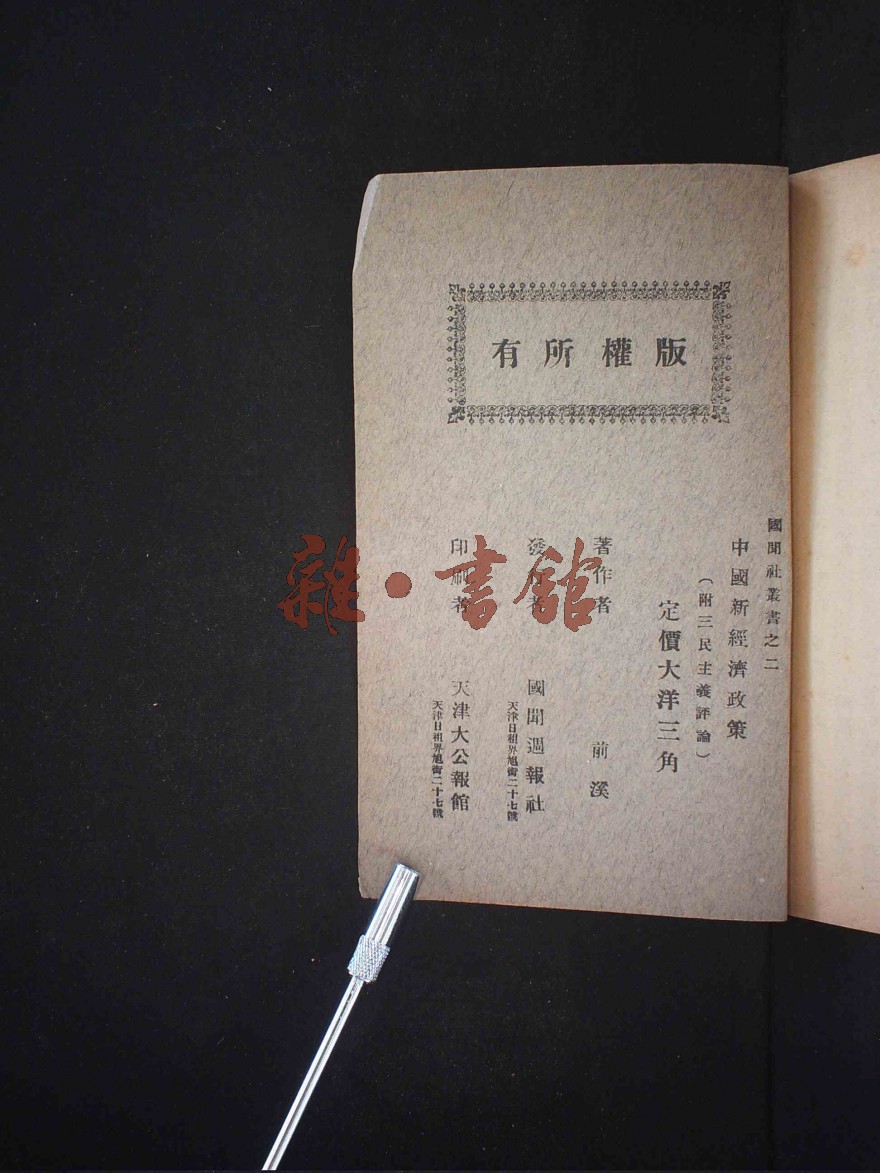 版權所有
國聞社叢書之二
中國新經濟政策
（附三民主義評論）
定價大洋三角
著作者 前溪
發行者 國聞週報社
天津日租界旭街二十七號
印刷者 天津大公報館
天津日租界旭街二十七號
雜·書館